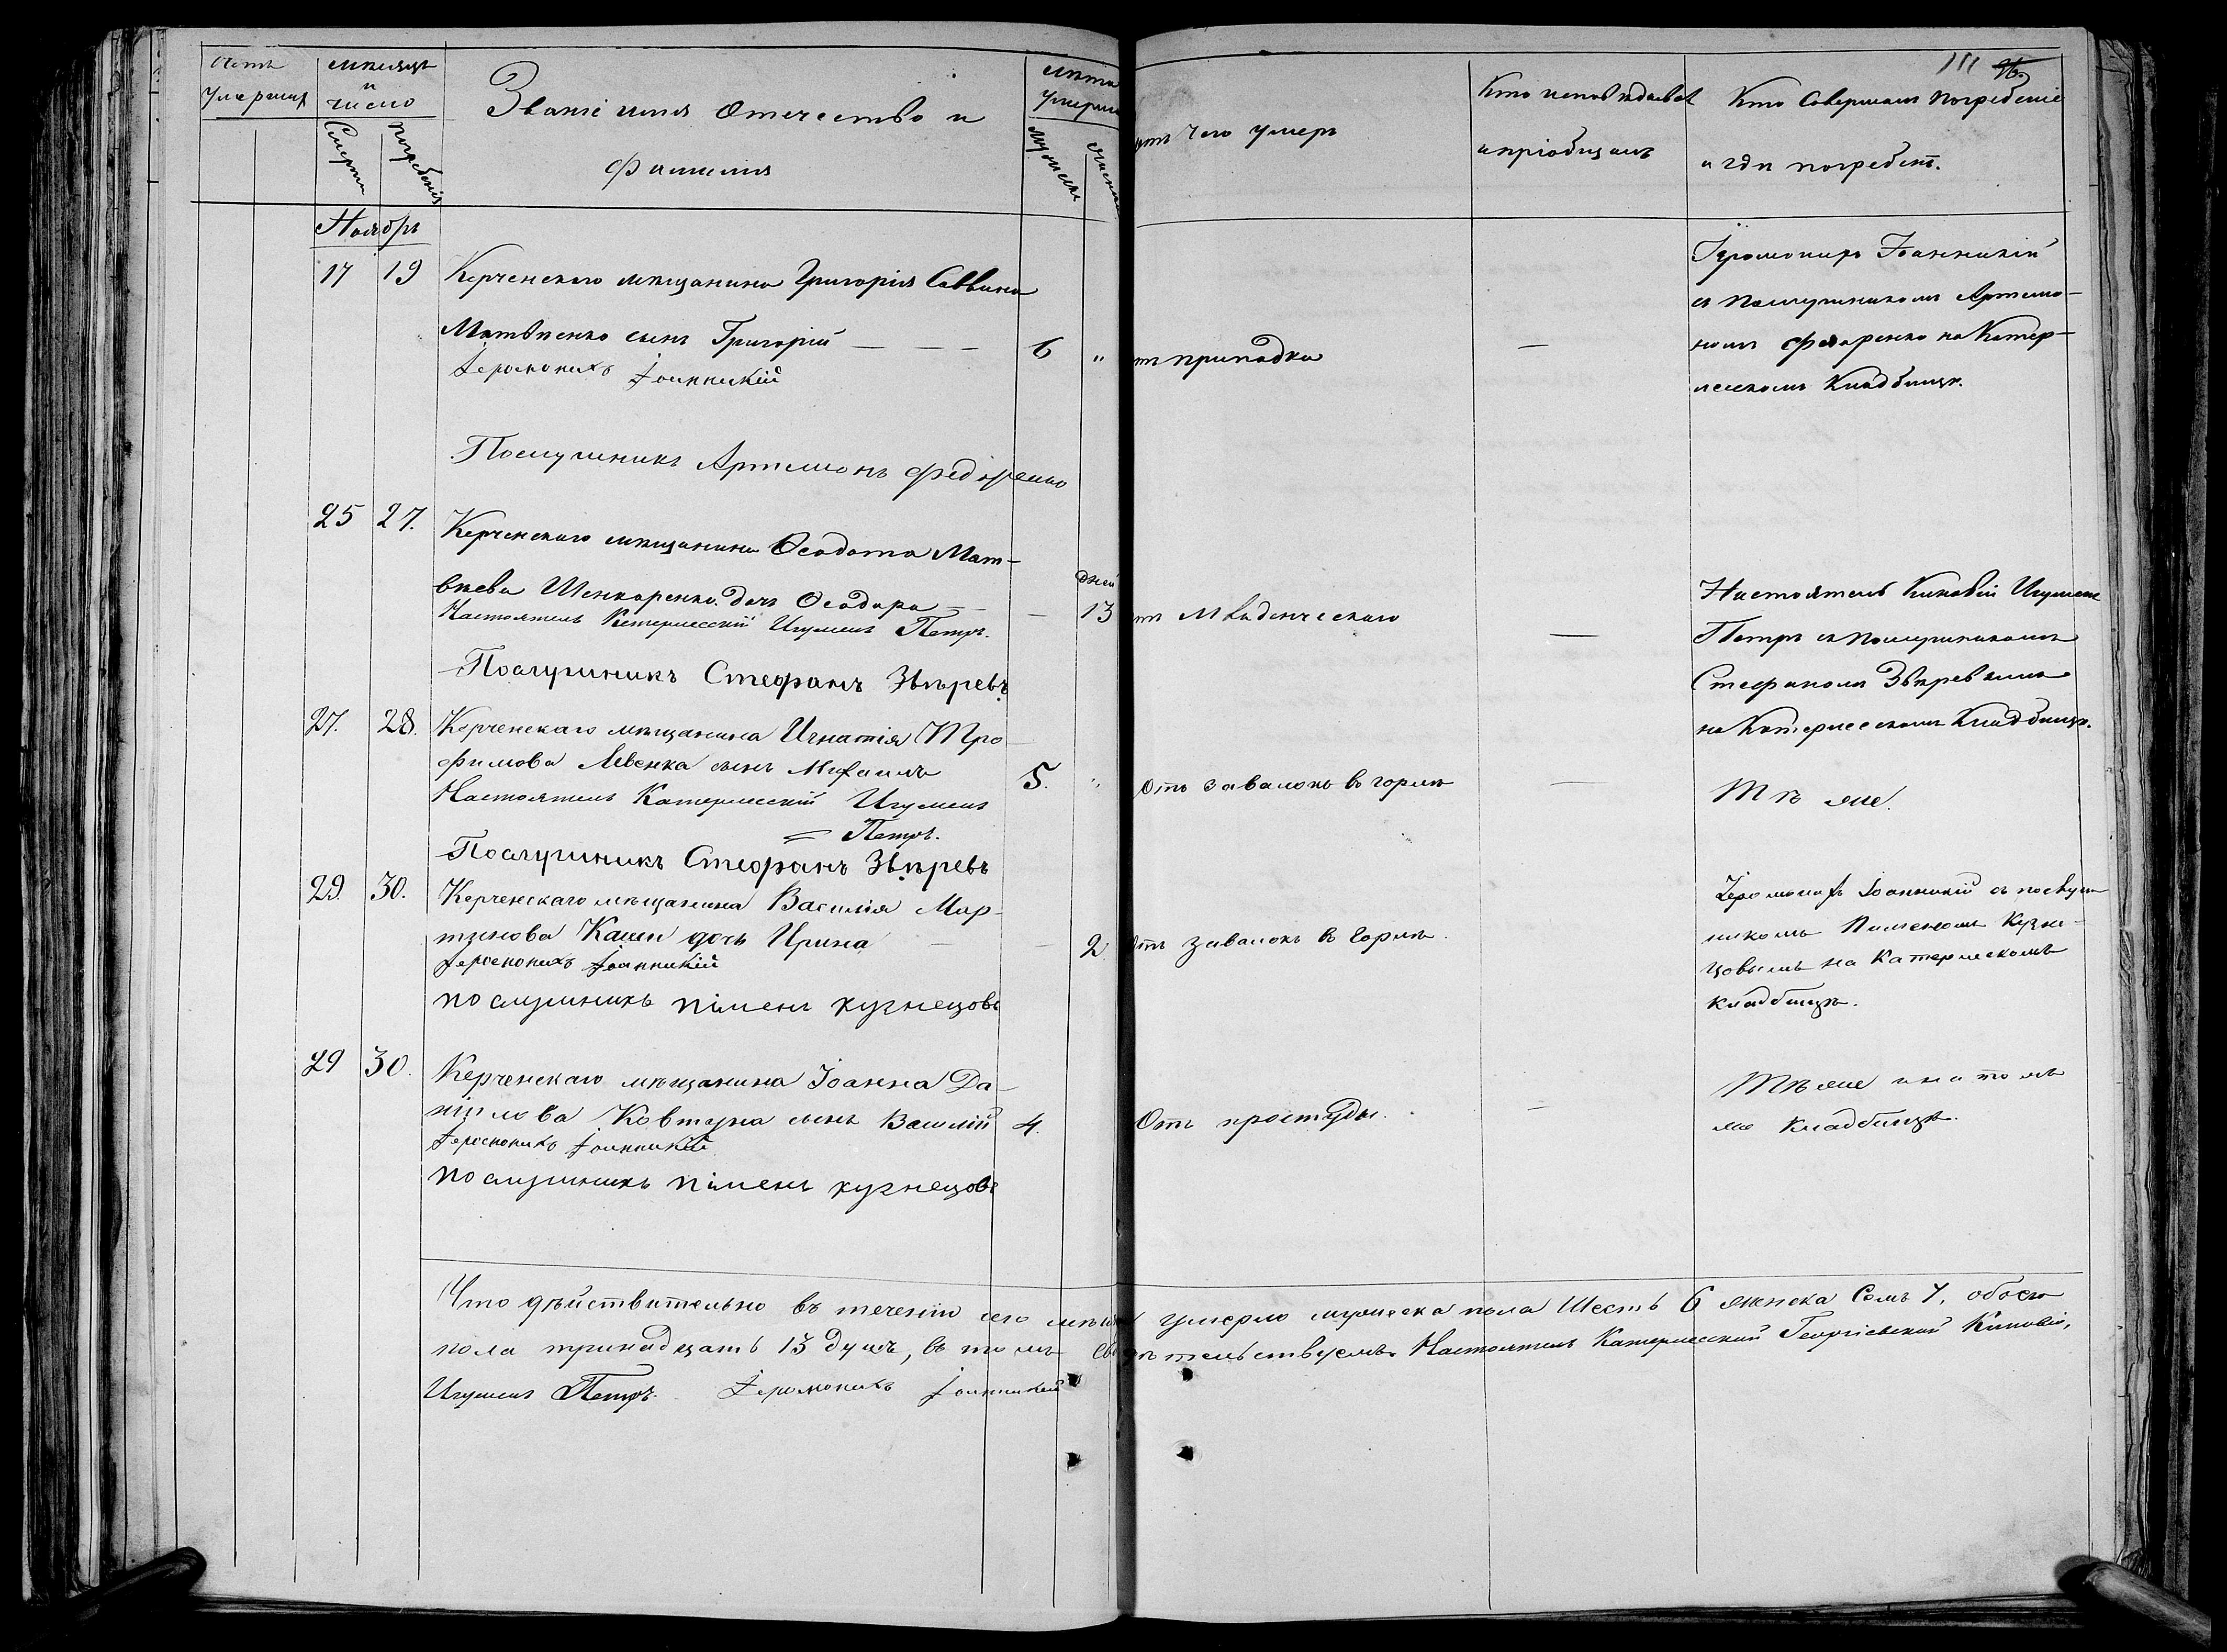 Счетъ умершихъ
мѣсяцъ и число
Смерти
Погребенія
Званіе имя Отчество и
фамилия
лѣта умерш
мужеска
женска
отъ Чего умеръ
Кто исповѣдывалъ
и пріобщалъ
Кто Совершалъ погребеніе
и гдѣ погребенъ.
111 96.
Ноябрь
17 19 Керченскаго мѣщанина Григорія Саввина
Матвѣенко сынъ Григорій — — — 6 "
отъ припадка —
Іеромонахъ Іоанникій
Іеромонахъ Іоанникій
съ Послушникомъ Артемо-
номъ Федоренко на Катер-
лесскомъ Кладбищѣ.
Послушникъ Артемонъ Федоренко
25 27. Керченскаго мѣщанина Ѳеодота Мат-
вѣева Шенкаренко дочь Ѳеодора — — дней 13
отъ Младенческаго —
Настоятель Катерлесскій Игуменъ Петръ.
Послушникъ Стефанъ Звѣревъ
Настоятель Киновіи Игуменъ
Петръ съ послушникомъ
Стефаномъ Звѣревымъ
на Катерлесскомъ Кладбищѣ.
27. 28. Керченскаго мѣщанина Игнатія Тро-
фимова Левенка сынъ Михаилъ 5. "
Отъ завалокъ въ горлѣ —
Тѣ же.
Настоятель Катерлесскій Игуменъ
= Петръ.
Послушникъ Стефанъ Звѣревъ
29. 30. Керченскаго мѣщанина Василія Мар-
тынова дочь Ирина — — 2.
Отъ завалокъ въ Горлѣ.
Іеромонахъ Іоанникій
послушникъ піменъ кузнецовъ
Іеромонахъ Іоанникій съ послуш
никомъ Пименомъ Кузне-
цовымъ на Катерлескомъ
кладбищѣ.
29 30. Керченскаго мѣщанина Іоанна Да-
нилова Ковтуна сынъ Василій 4.
Отъ простуды. —
Іеромонахъ Іоанникій
послушникъ піменъ кузнецовъ
Тѣ же и на томъ
же Кладбищѣ.
Что дѣйствительно въ теченіи сего мѣсяца умерло мужеска пола Шесть 6 женска Семь 7, обоего
пола тринадцать 13 душъ, въ томъ свидѣтельствуемъ. Настоятель Катерлесской Георгіевской Киновіи,
Игуменъ Петръ. Іеромонахъ Іоанникій